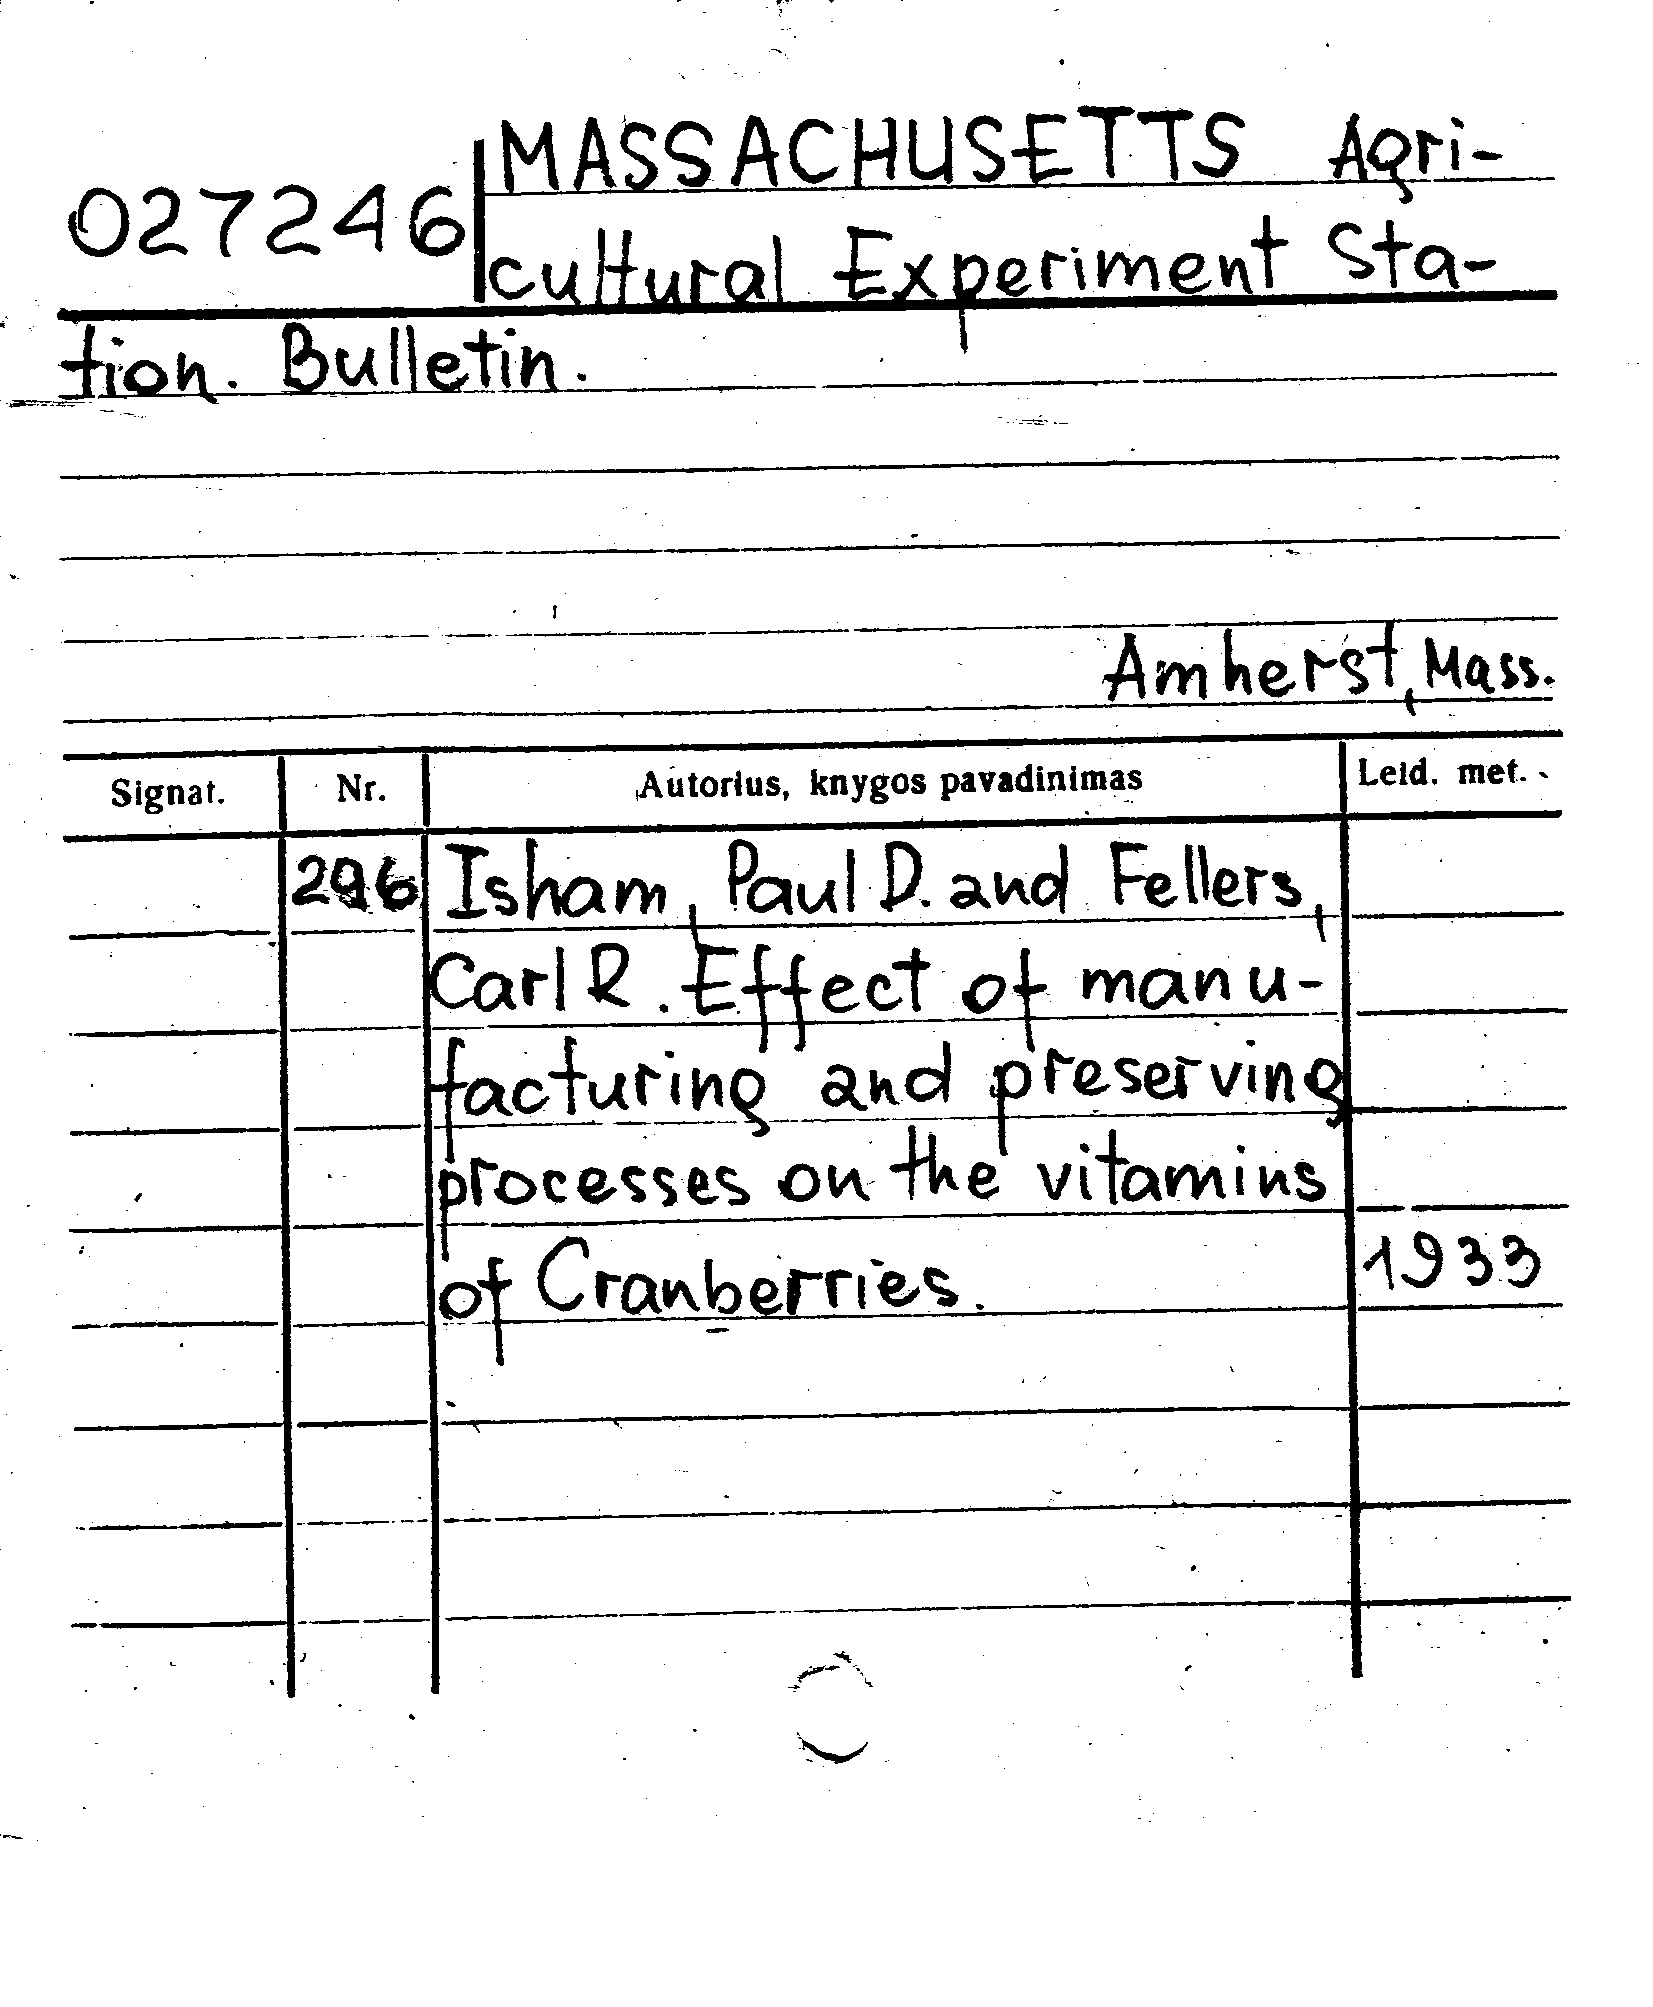 MASSACHUSETTS Agri-
027246 cultural Experiment Sta-
tion. Bulletin.
Amherst, Mass.
Signat. Nr. Autorius, knygos pavadinimas Leid. met.
296 Isham, Paul D. and Fellers,
Carl R. Effect of manu-
facturing and preserving
processes on the vitamins
of Cranberries. 1933